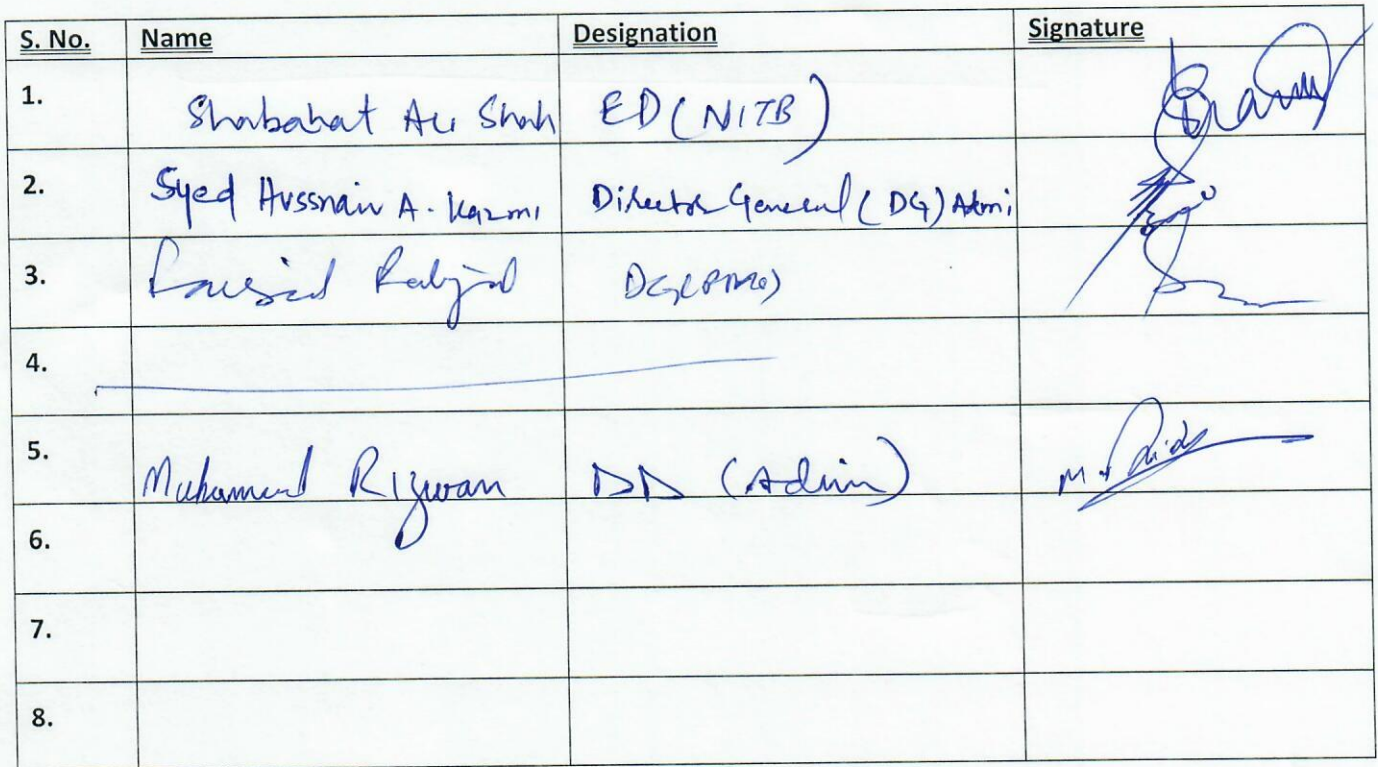 S. No. Name Designation Signature
1. Shabahat Ali Shah ED (NITB)
2. Syed Hussnain A. Kazmi Director General (DG) Admi
3.
4.
5. Muhammad Rizwan DD (Admin)
6.
7.
8.